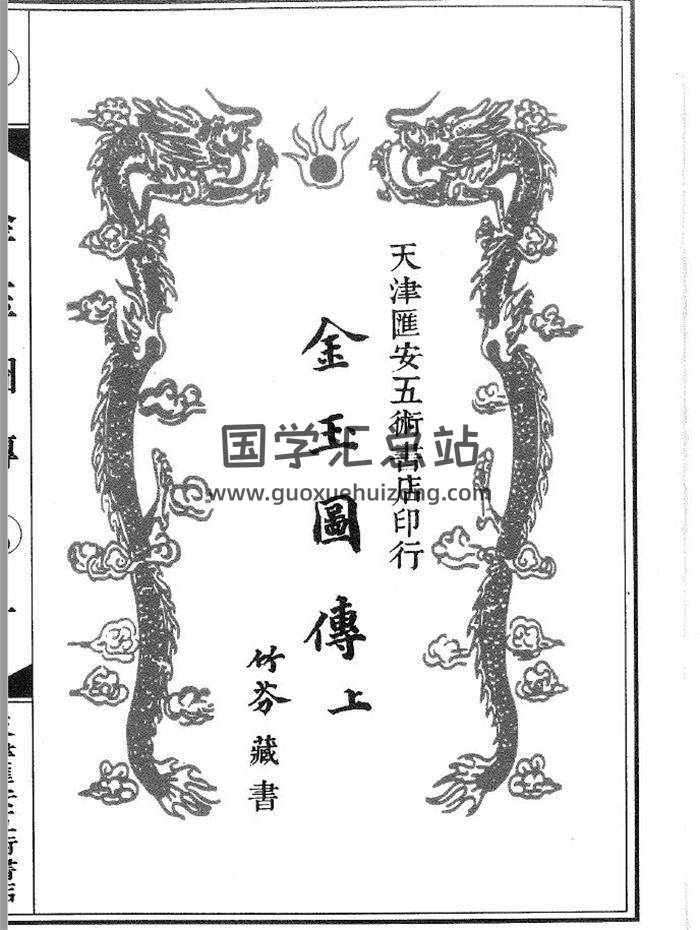 天津匯安五術書店印行
金玉圖傳上
竹芬藏書
国学汇总站
www.guoxuehuizong.com